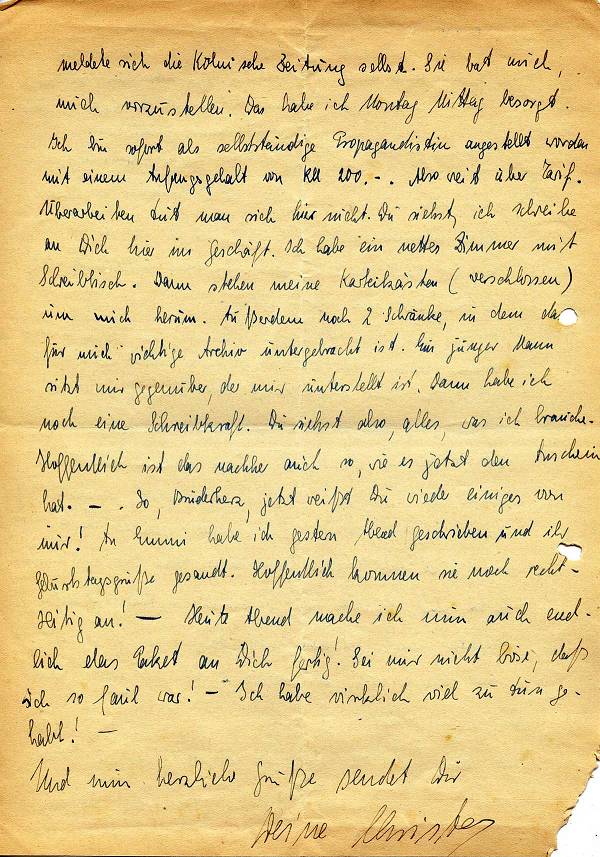 meldete sich die Kölnische Zeitung selbst. Sie bat mich,
mich vorzustellen. Das habe ich Montag Mittag besorgt.
Ich bin sofort als selbstständige Propagandistin angestellt worden
mit einem Anfangsgehalt von RM 200.-. Also weit über Tarif.
Überarbeiten tut man sich hier nicht. Du siehst, ich schreibe
an Dich hier im Geschäft. Ich habe ein nettes Zimmer mit
Schreibtisch. Dann stehen meine Karteikästen (verschlossen)
um mich herum. Außerdem noch 2 Schränke, in dem das
für mich wichtige Archiv untergebracht ist. Ein junger Mann
sitzt mir gegenüber, der mir unterstellt ist. Dann habe ich
noch eine Schreibkraft. Du siehst also, alles, was ich brauche.
Hoffentlich ist das nachher auch so, wie es jetzt den Anschein
hat. - . So, Bruderherz, jetzt weißt Du wieder einiges von
mir! An Emmi habe ich gestern Abend geschrieben und ihr
Geburtstagsgrüße gesandt. Hoffentlich kommen sie noch recht-
zeitig an! — Heute Abend mache ich nun auch end-
lich das Paket an Dich fertig! Sei mir nicht böse, daß
ich so faul war! - Ich habe wirklich viel zu tun ge-
habt! —
Und nun herzliche Grüße sendet Dir
Deine